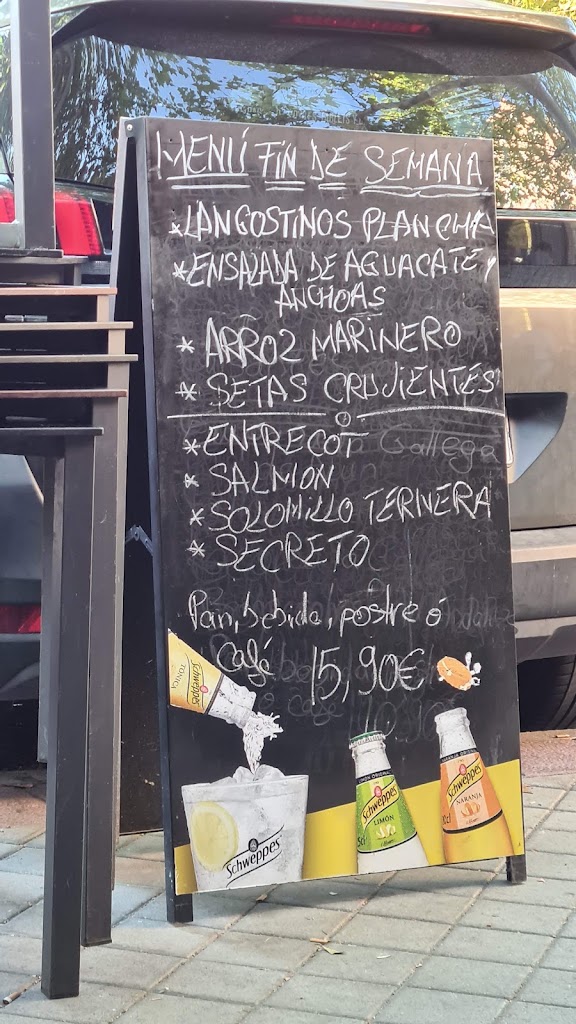 MENÚ FIN DE SEMANA
* LANGOSTINOS PLANCHA
* ENSALADA DE AGUACATE Y
ANCHOAS
* ARROZ MARINERO
* SETAS CRUJIENTES
* ENTRECOT Gallega
* SALMON
* SOLOMILLO TERNERA
* SECRETO
Pan, bebida, postre ó
Café 15,90€
Schweppes
TONICA
Schweppes
LIMÓN ORIGINAL
Schweppes
LIMÓN
Schweppes
NARANJA